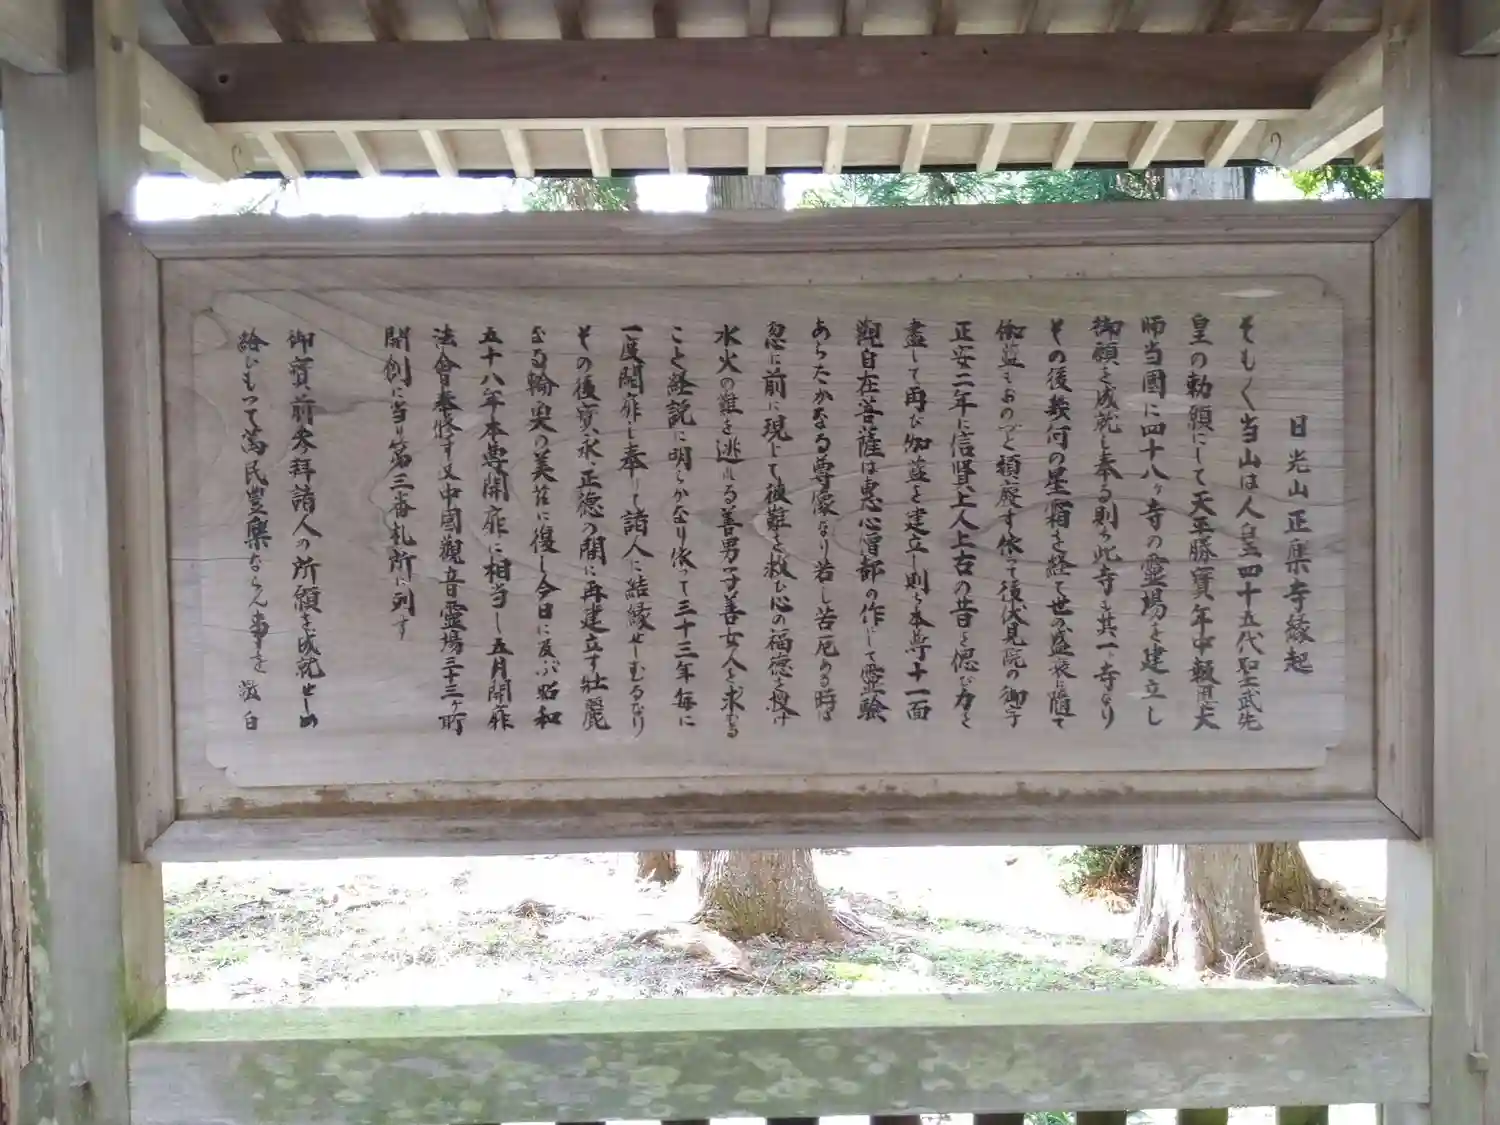 日光山正楽寺縁起
そもく当山は人皇四十五代聖武先
皇の勅願にして天平勝寳年中報恩大
師当國に四十八ヶ寺の霊場を建立し
御願を成就し奉る則ち此寺も其一ヶ寺なり
その後幾何の星霜を経て世の盛衰に随て
伽藍もおのづと頽廃す依って後伏見院の御宇
正安二年に信賢上人上古の昔を偲び力を
盡して再び伽藍を建立し則ち本尊十一面
觀自在菩薩は恵心僧都の作にして霊験
あらたかなる尊像なり若し苦厄ある時は
忽に前に現じて彼難を救ひ心の福徳を授け
水火の難を逃れる善男子善女人を求むる
こと経説に明らかなり依って三十三年毎に
一度開扉し奉して諸人に結縁せしむるなり
その後寳永、正徳の間に再建立す壮麗
なる輪奐の美荘に復し今日に及ぶ昭和
五十八年本尊開扉に相当し五月開扉
法會奉修す又中國觀音霊場三十三ヶ所
開創に当り第三番札所に列す
御寳前参拝諸人の所願を成就せしめ
給ひもって萬民豊樂ならん事を 敬白